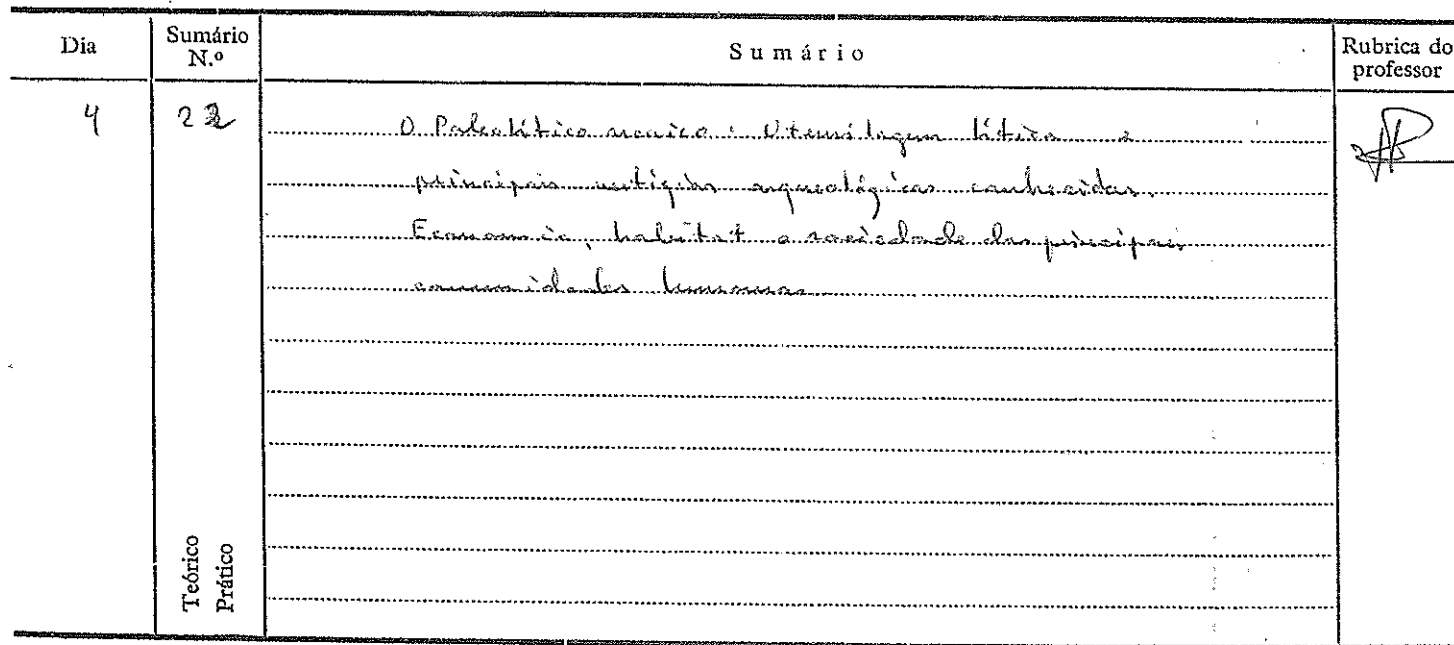 Dia
Sumário N.º
Sumário
Rubrica do professor
4
22
O Paleolítico : Utensilagem lítica e
principais vestígios arqueológicos conhecidos.
Economia, habitat e sociedade das principais
comunidades humanas
Teórico
Prático